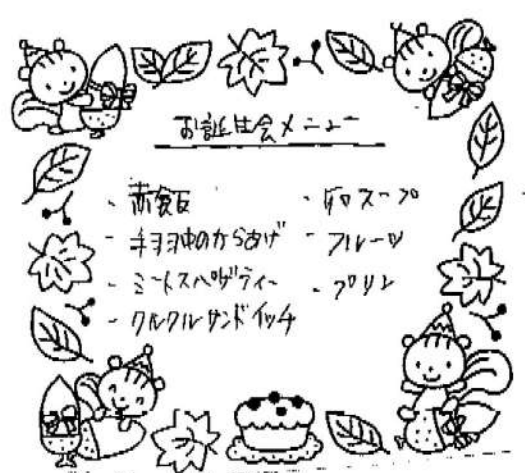 お誕生会メニュー
・赤飯
・からあげ
・ミートスパゲティー
・クルクルサンドイッチ
・スープ
・フルーツ
・プリン